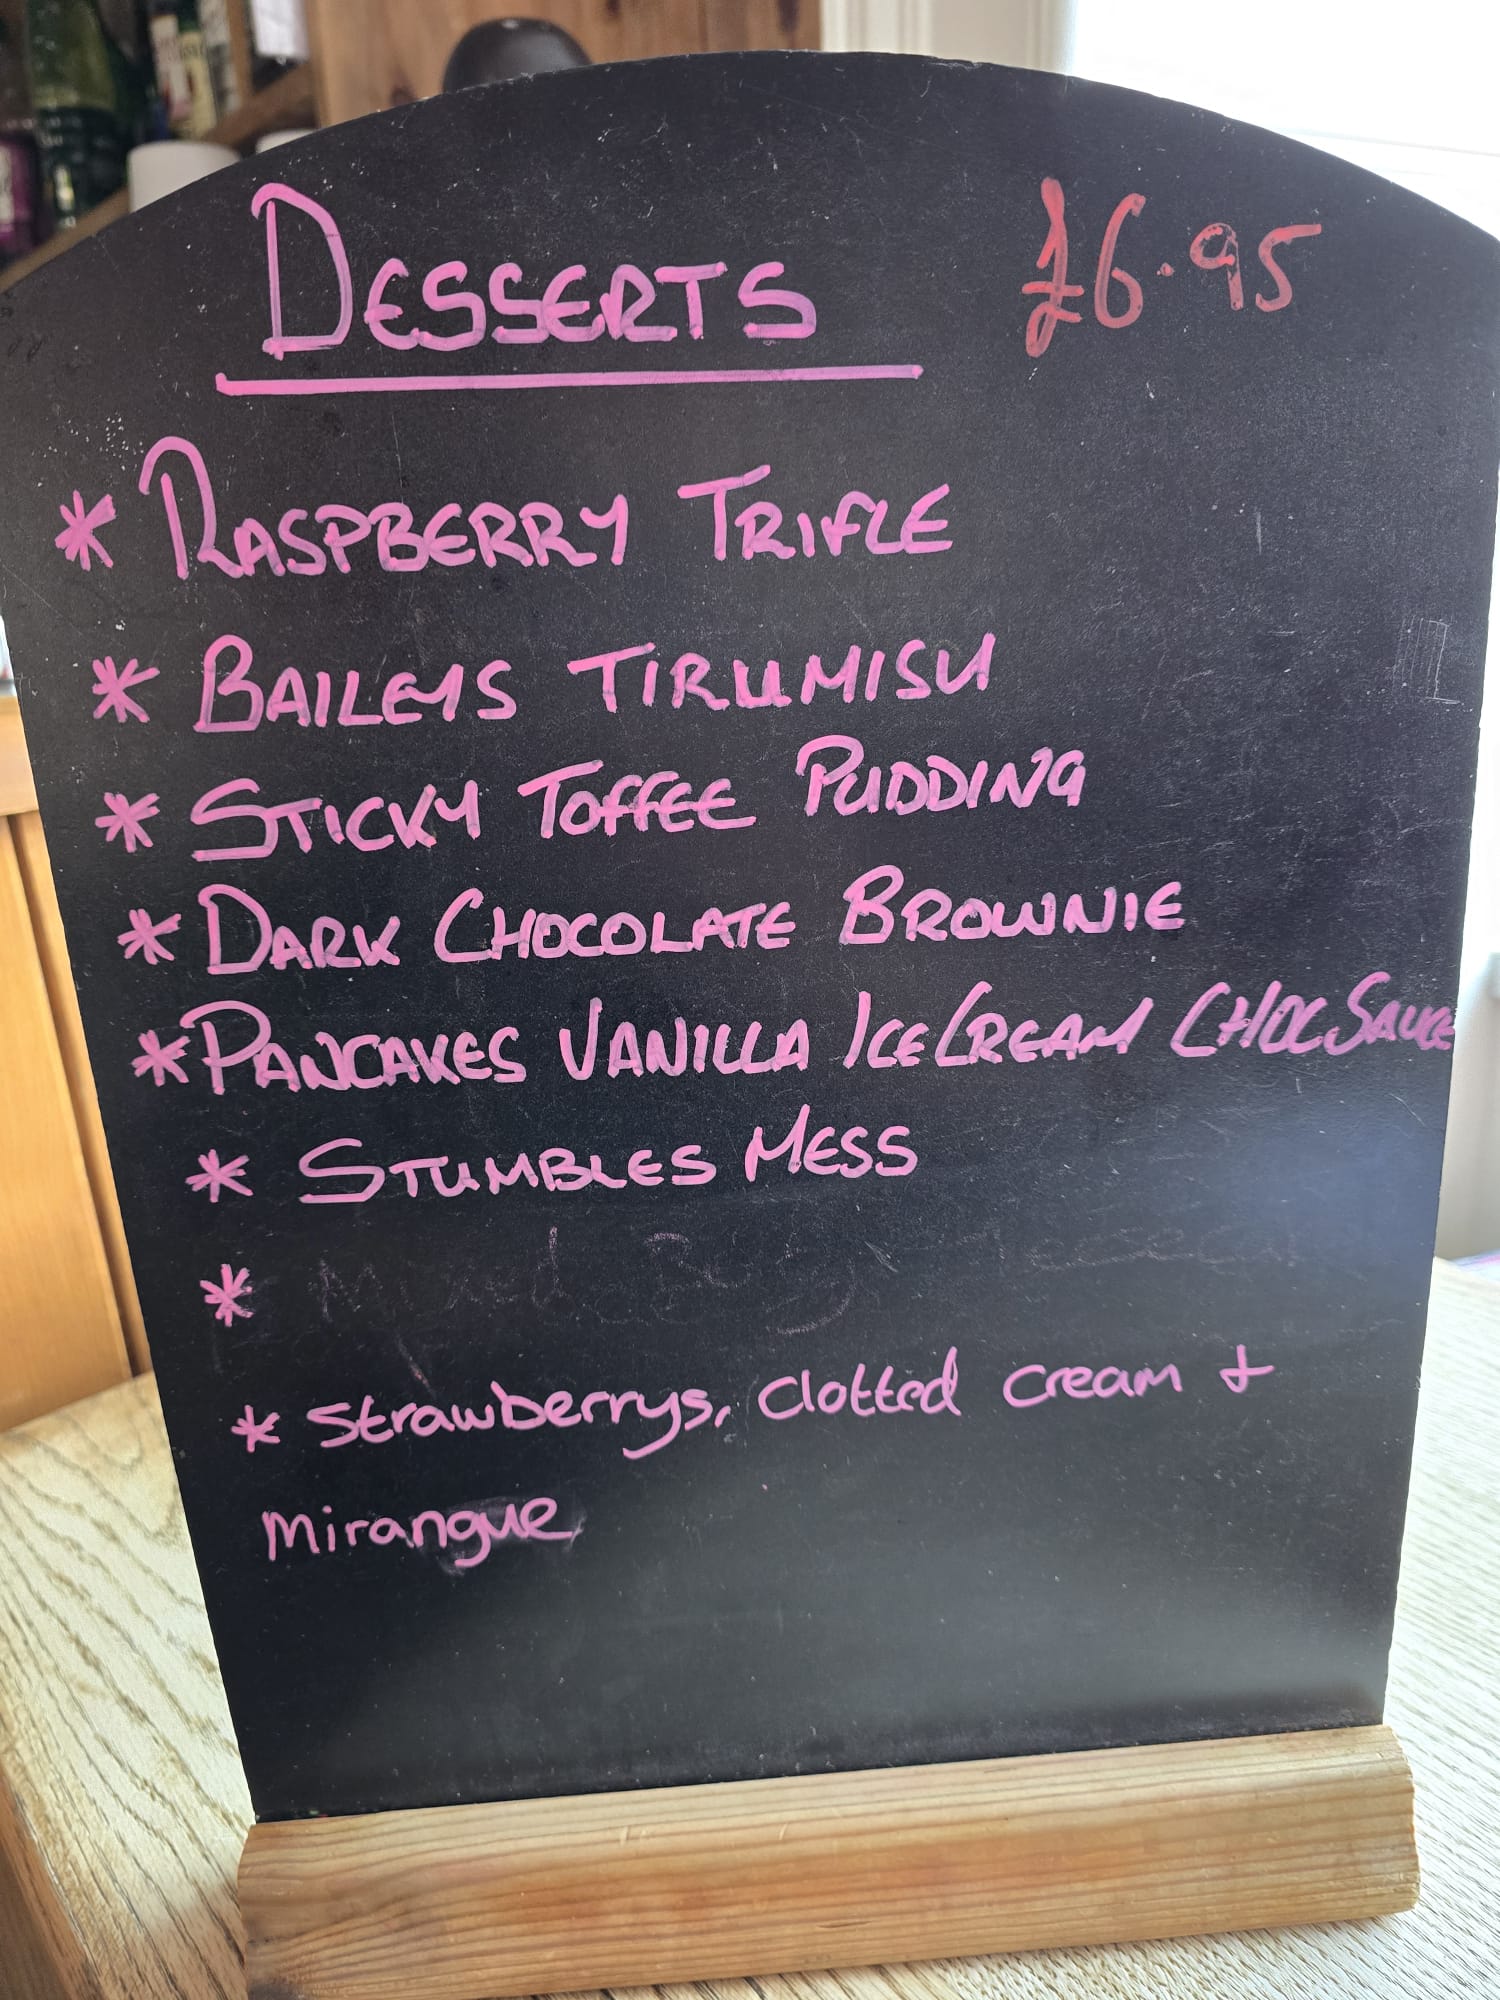 DESSERTS £6.95
* RASPBERRY TRIFLE
* BAILEYS TIRUMISU
* STICKY TOFFEE PUDDING
* DARK CHOCOLATE BROWNIE
* PANCAKES VANILLA ICE CREAM CHOC SAUCE
* STUMBLES MESS
*
* Strawberrys, clotted cream +
mirangue